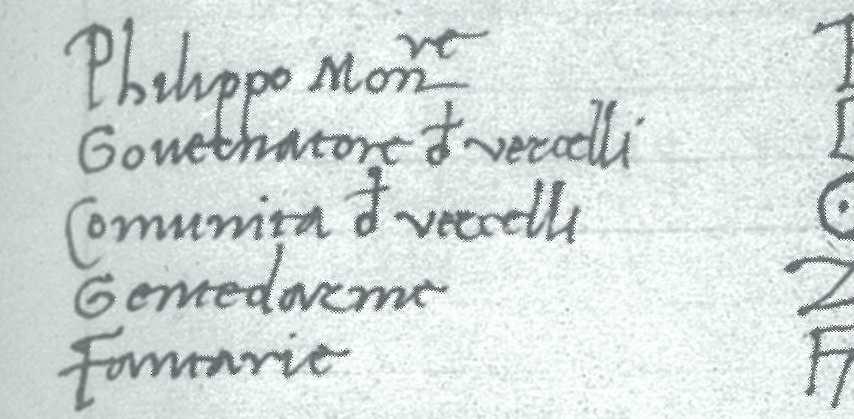 Philippo Mon^re
Gouernatore đ vercelli
Comunita đ vercelli
Gentedarme
Fantarie